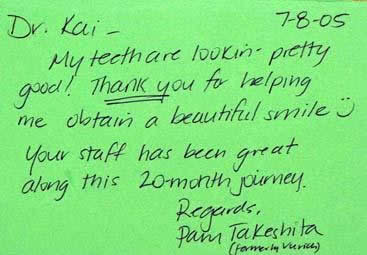 Dr. Kai - 7-8-05
My teeth are lookin- pretty
good! Thank you for helping
me obtain a beautiful smile :)
Your staff has been great
along this 20-month journey.
Regards,
Pam Takeshita
(formerly